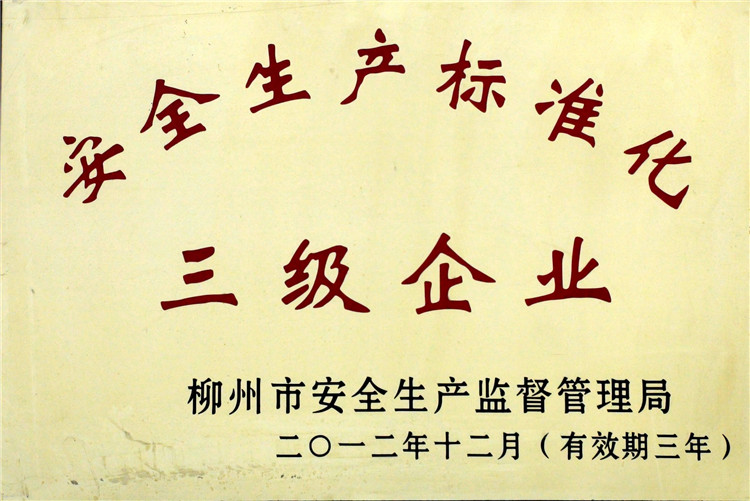 安全生产标准化
三级企业
柳州市安全生产监督管理局
二〇一二年十二月(有效期三年)